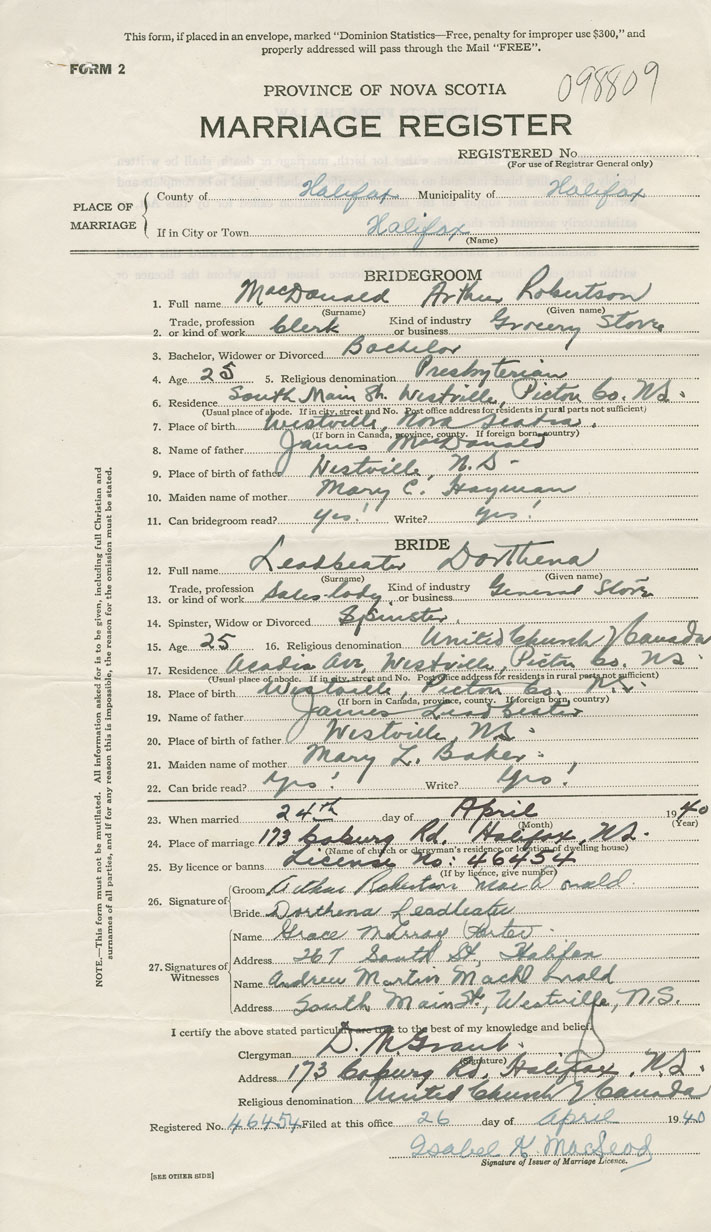 This form, if placed in an envelope, marked "Dominion Statistics—Free, penalty for improper use $300," and
properly addressed will pass through the Mail "FREE".
FORM 2
098809
PROVINCE OF NOVA SCOTIA
MARRIAGE REGISTER
REGISTERED No.
(For use of Registrar General only)
PLACE OF MARRIAGE
County of Halifax Municipality of Halifax
If in City or Town Halifax
(Name)
BRIDEGROOM
1. Full name MacDonald Arthur Robertson
(Surname) (Given name)
2. Trade, profession or kind of work Clerk Kind of industry or business Grocery Store
3. Bachelor, Widower or Divorced Bachelor
4. Age 25 5. Religious denomination Presbyterian
6. Residence South Main St. Westville, Pictou Co. N.S.
(Usual place of abode. If in city, street and No. Post office address for residents in rural parts not sufficient)
7. Place of birth Westville, Nova Scotia.
(If born in Canada, province, county. If foreign born, country)
8. Name of father James MacDonald
9. Place of birth of father Westville, N.S-
10. Maiden name of mother Mary C. Hayman
11. Can bridegroom read? Yes! Write? Yes!
BRIDE
12. Full name Leadbeater Dorthena
(Surname) (Given name)
13. Trade, profession or kind of work Sales-lady Kind of industry or business General Store
14. Spinster, Widow or Divorced Spinster.
15. Age 25 16. Religious denomination United Church of Canada
17. Residence Acadia Ave, Westville, Pictou Co. N.S.
(Usual place of abode. If in city, street and No. Post office address for residents in rural parts not sufficient)
18. Place of birth Westville, Pictou Co. N.S.
(If born in Canada, province, county. If foreign born, country)
19. Name of father James Leadbeater
20. Place of birth of father Westville, N.S.
21. Maiden name of mother Mary L. Baker.
22. Can bride read? Yes! Write? Yes!
23. When married 24th day of April 1940
(Month) (Year)
24. Place of marriage 173 Coburg Rd. Halifax, N.S.
(Name of church or clergyman's residence or location of dwelling house)
25. By licence or banns License No: 46454
(If by licence, give number)
26. Signature of
Groom Arthur Robertson MacDonald
Bride Dorthena Leadbeater
27. Signatures of Witnesses
Name Grace Murray Porter
Address 267 South St, Halifax
Name Andrew Martin MacDonald
Address South Main St, Westville, N.S.
I certify the above stated particulars are true to the best of my knowledge and belief.
Clergyman D. M. Grant.
(Signature)
Address 173 Coburg Rd, Halifax, N.S.
Religious denomination United Church of Canada
Registered No. 46454 Filed at this office 26 day of April 1940
Isabel K MacLeod
Signature of Issuer of Marriage Licence.
[SEE OTHER SIDE]
NOTE.—This form must not be mutilated. All information asked for is to be given, including full Christian and
surnames of all parties, and if for any reason this is impossible, the reason for the omission must be stated.